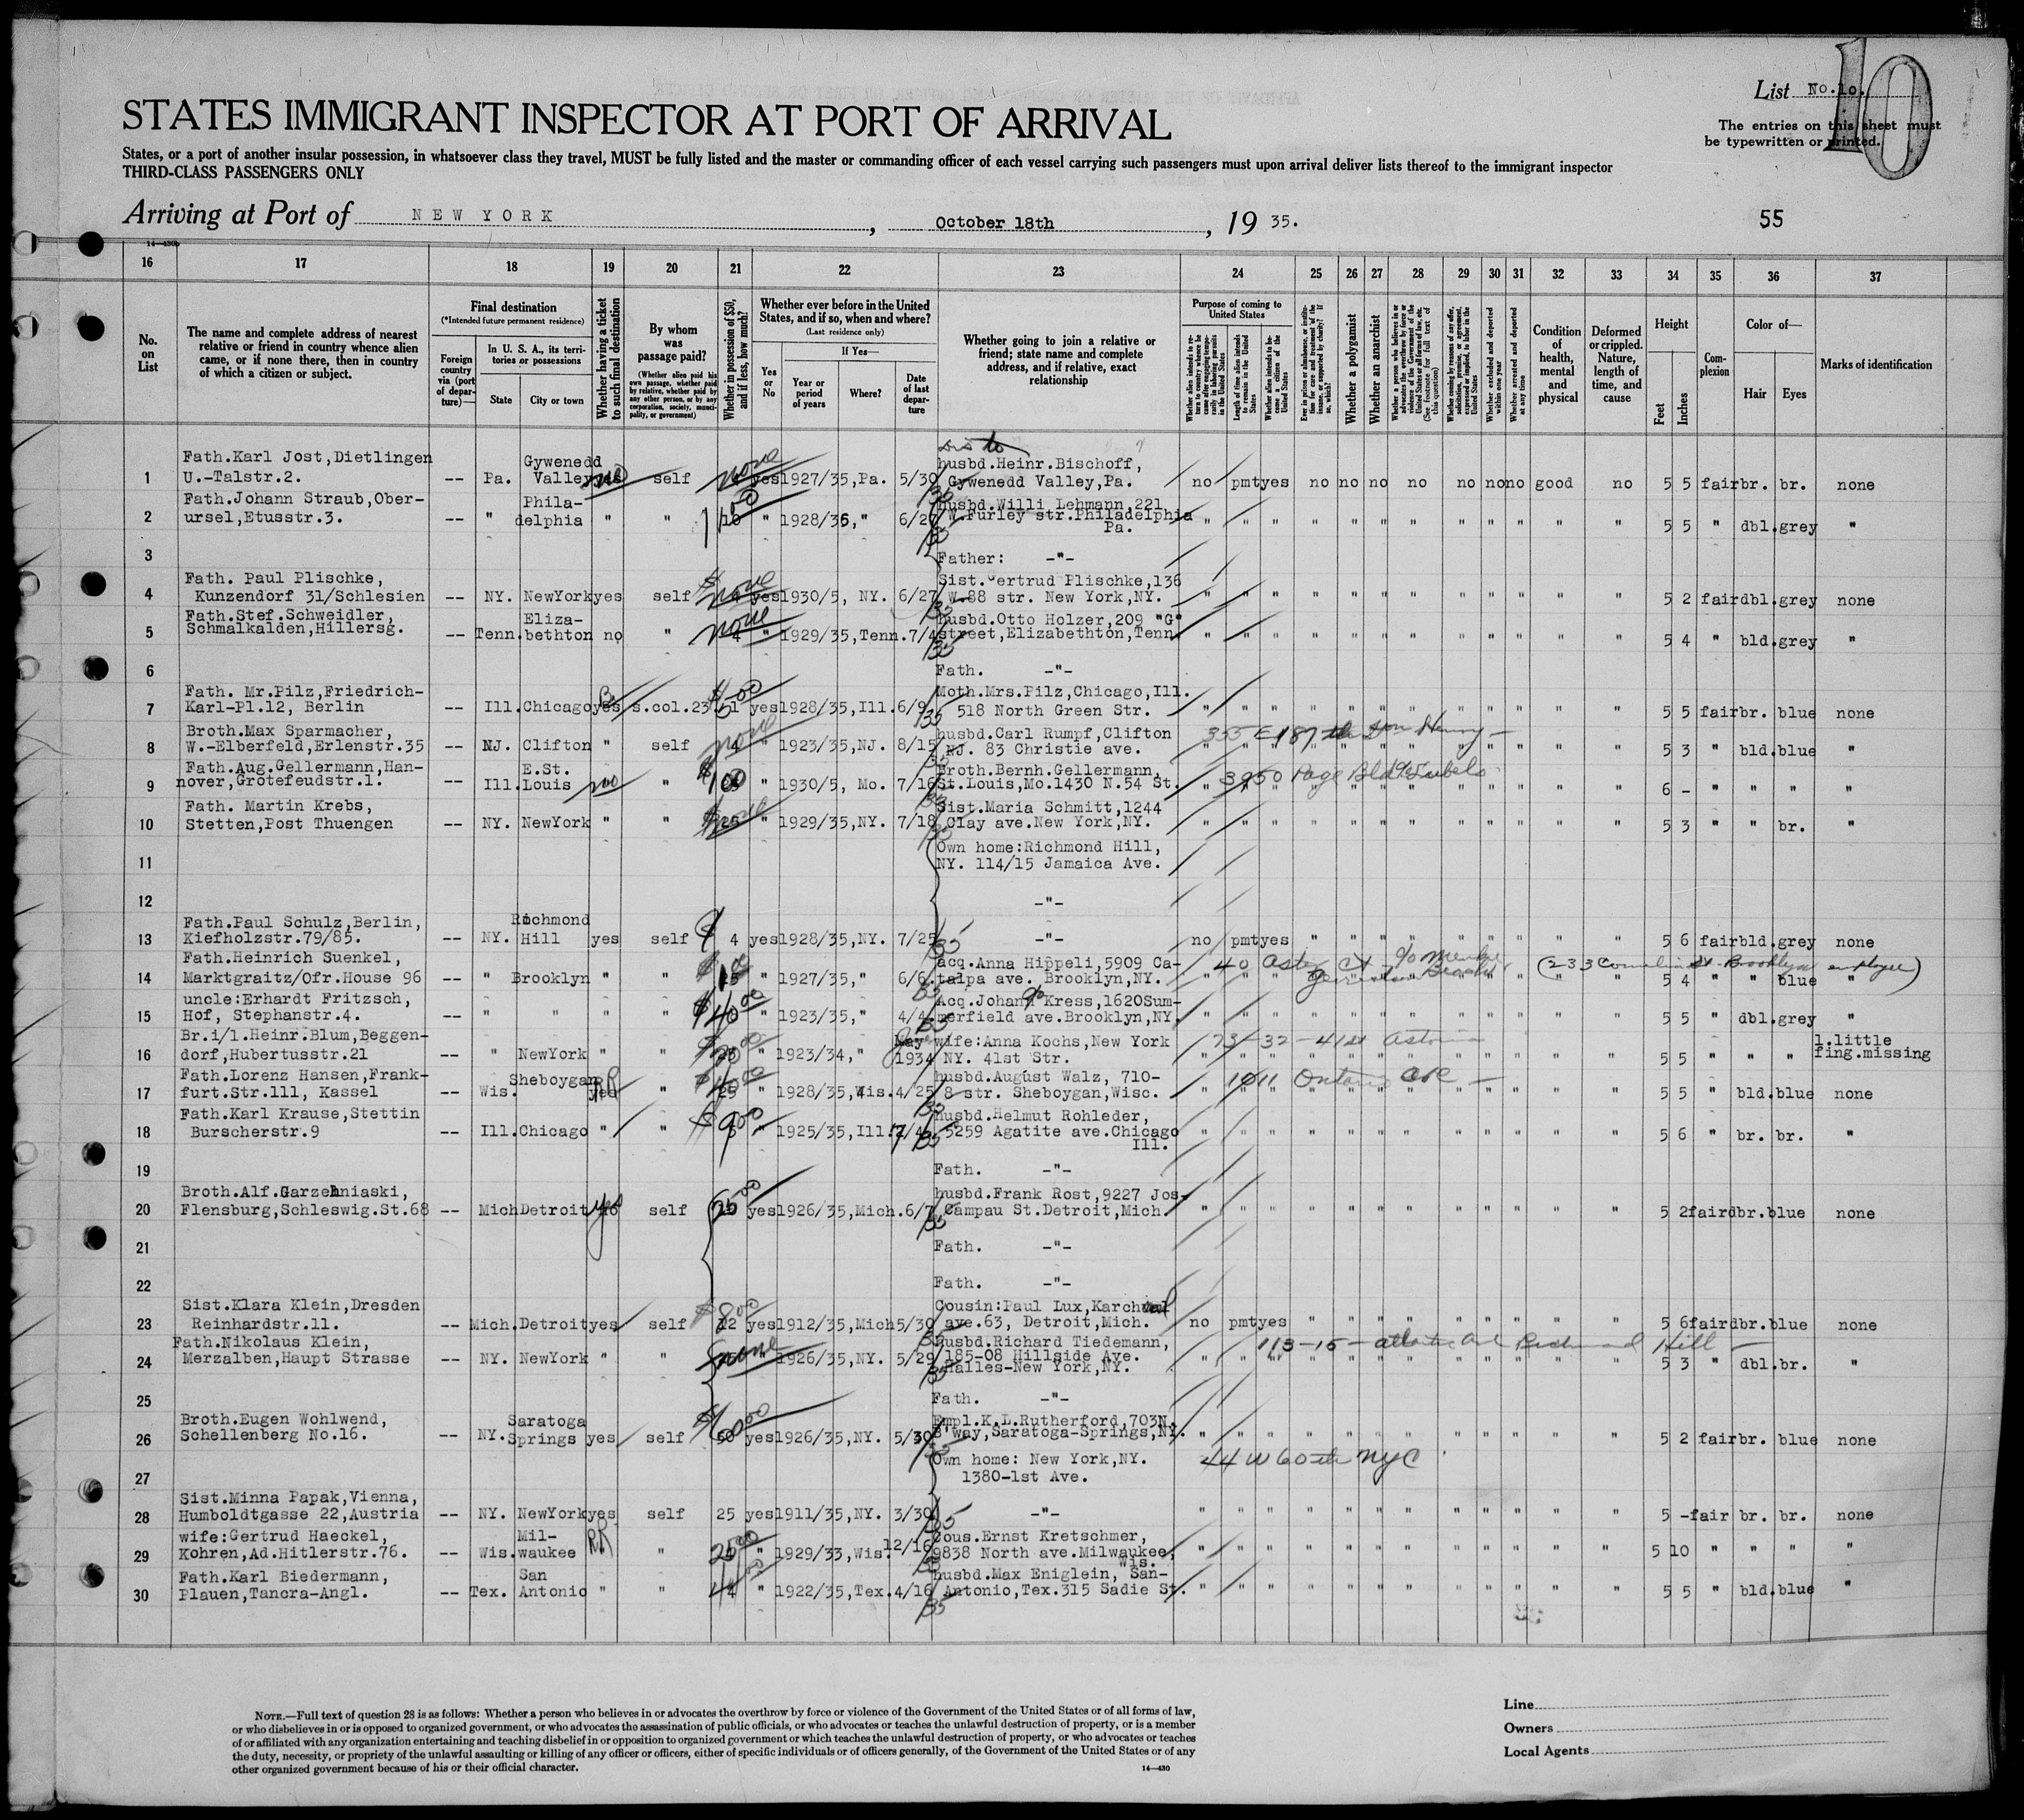 List No.10.
10
The entries on this sheet must
be typewritten or printed.
STATES IMMIGRANT INSPECTOR AT PORT OF ARRIVAL
States, or a port of another insular possession, in whatsoever class they travel, MUST be fully listed and the master or commanding officer of each vessel carrying such passengers must upon arrival deliver lists thereof to the immigrant inspector
THIRD-CLASS PASSENGERS ONLY
Arriving at Port of NEW YORK, October 18th, 19 35.
55
14—430b
16 17 18 19 20 21 22 23 24 25 26 27 28 29 30 31 32 33 34 35 36 37
No. on List
The name and complete address of nearest relative or friend in country whence alien came, or if none there, then in country of which a citizen or subject.
Final destination
(*Intended future permanent residence)
Foreign country via (port of departure)—
In U. S. A., its territories or possessions
State
City or town
Whether having a ticket to such final destination
By whom was passage paid?
(Whether alien paid his own passage, whether paid by relative, whether paid by any other person, or by any corporation, society, municipality, or government)
Whether in possession of $50, and if less, how much?
Whether ever before in the United States, and if so, when and where?
(Last residence only)
If Yes—
Yes or No
Year or period of years
Where?
Date of last departure
Whether going to join a relative or friend; state name and complete address, and if relative, exact relationship
Purpose of coming to United States
Length of time alien intends to remain in the United States
Whether alien intends to become a citizen of the United States
Whether a polygamist
Whether an anarchist
Whether excluded and deported within one year
Whether arrested and deported at any time
Condition of health, mental and physical
Deformed or crippled. Nature, length of time, and cause
Height
Feet
Inches
Complexion
Color of—
Hair
Eyes
Marks of identification
1 Fath.Karl Jost,Dietlingen U.-Talstr.2. -- Pa. Gywenedd Valley no self none yes 1927/35,Pa. 5/30/35 husbd.Heinr.Bischoff, Gywenedd Valley,Pa. no pmt yes no no no no no no no good no 5 5 fair br. br. none
2 Fath.Johann Straub,Oberursel,Etusstr.3. -- " Philadelphia " " " 1928/35," 6/27/35 husbd.Willi Lehmann,221 W.Furley str.Philadelphia Pa. " " " " " " " " " " " " 5 5 " dbl. grey "
3 Father: -"-
4 Fath. Paul Plischke, Kunzendorf 31/Schlesien -- NY. NewYork yes self none yes 1930/5, NY. 6/27/35 Sist.Gertrud Plischke,136 W.88 str. New York,NY. " " " " " " " " " " " " 5 2 fair dbl. grey none
5 Fath.Stef.Schweidler, Schmalkalden,Hillersg. -- Tenn. Elizabethton no " none " 1929/35,Tenn. 7/4/35 husbd.Otto Holzer,209 "G" street,Elizabethton,Tenn. " " " " " " " " " " " " 5 4 " bld. grey "
6 Fath. -"-
7 Fath. Mr.Pilz,Friedrich-Karl-Pl.12, Berlin -- Ill. Chicago yes s.col.23 yes 1928/35,Ill. 6/9/35 Moth.Mrs.Pilz,Chicago,Ill. 518 North Green Str. " " " " " " " " " " " " 5 5 fair br. blue none
8 Broth.Max Sparmacher, W.-Elberfeld,Erlenstr.35 -- NJ. Clifton " self none 4 " 1923/35,NJ. 8/15/35 husbd.Carl Rumpf,Clifton NJ. 83 Christie ave. 355 E 187 th Henry " " " " " " " " " " " " 5 3 " bld. blue "
9 Fath.Aug.Gellermann,Hannover,Grotefeudstr.1. -- Ill. E.St. Louis no " $100 " 1930/5, Mo. 7/16/35 Broth.Bernh.Gellermann, St.Louis,Mo.1430 N.54 St. 3950 Page " " " " " " " " " " " " 6 - " " " "
10 Fath. Martin Krebs, Stetten,Post Thuengen -- NY. NewYork " " 25 " 1929/35,NY. 7/18/35 Sist.Maria Schmitt,1244 Clay ave.New York,NY. " " " " " " " " " " " " 5 3 " " br. "
11 Own home:Richmond Hill, NY. 114/15 Jamaica Ave.
12 -"-
13 Fath.Paul Schulz,Berlin, Kiefholzstr.79/85. -- NY. Richmond Hill yes self $ 4 yes 1928/35,NY. 7/25/35 -"- no pmt yes " " " " " " " " " 5 6 fair bld. grey none
14 Fath.Heinrich Suenkel, Marktgraitz/Ofr.House 96 -- " Brooklyn " " " 1927/35," 6/6/35 acq.Anna Hippeli,5909 Catalpa ave. Brooklyn,NY. 40 Astor Ct (233 St Brooklyn employer) 5 4 " " blue "
15 uncle:Erhardt Fritzsch, Hof, Stephanstr.4. -- " " " " $40 00 " 1923/35," 4/4/35 Acq.Johann Kress,1620Summerfield ave.Brooklyn,NY. " " " " " " " " " " " " 5 5 " dbl. grey "
16 Br.i/l.Heinr.Blum,Beggendorf,Hubertusstr.21 -- " NewYork " " " 1923/34," 1934 wife:Anna Kochs,New York NY. 41st Str. 73-32-41st Astoria " " " " " " " " " " " " 5 5 " " " l.little fing.missing
17 Fath.Lorenz Hansen,Frankfurt.Str.111, Kassel -- Wis. Sheboygan RR yes " " 1928/35,Wis. 4/25/35 husbd.August Walz, 710-8 str. Sheboygan,Wisc. 1011 Ontario ave " " " " " " " " " " " " 5 5 " bld. blue none
18 Fath.Karl Krause,Stettin Burscherstr.9 -- Ill. Chicago " " $9 00 " 1925/35,Ill. 7/4/35 husbd.Helmut Rohleder, 5259 Agatite ave.Chicago Ill. " " " " " " " " " " " " 5 6 " br. br. "
19 Fath. -"-
20 Broth.Alf.Garzehniaski, Flensburg,Schleswig.St.68 -- Mich Detroit yes self 25 00 yes 1926/35,Mich. 6/7/35 husbd.Frank Rost,9227 Jos. Campau St.Detroit,Mich. " " " " " " " " " " " " 5 2 fair dbr. blue none
21 Fath. -"-
22 Fath. -"-
23 Sist.Klara Klein,Dresden Reinhardstr.11. -- Mich. Detroit yes self $8 00 yes 1912/35,Mich 5/30/35 Cousin:Paul Lux,Karchval ave.63, Detroit,Mich. no pmt yes " " " " " " " " " 5 6 fair dbr. blue none
24 Fath.Nikolaus Klein, Merzalben,Haupt Strasse -- NY. NewYork " " none " 1926/35,NY. 5/29/35 husbd.Richard Tiedemann, 185-08 Hillside Ave. Halles-New York,NY. 113-15 - Atlantic Ave Richmond Hill " " " " " " " " " " " " 5 3 " dbl. br. "
25 Fath. -"-
26 Broth.Eugen Wohlwend, Schellenberg No.16. -- NY. Saratoga Springs yes self 50 yes 1926/35,NY. 5/30/35 Empl.K.L.Rutherford,703N. B'way,Saratoga-Springs,NY. " " " " " " " " " " " " 5 2 fair br. blue none
27 Own home: New York,NY. 1380-1st Ave. 44 W 60th NYC
28 Sist.Minna Papak,Vienna, Humboldtgasse 22,Austria -- NY. NewYork yes self 25 yes 1911/35,NY. 3/30/35 -"- " " " " " " " " " " " " 5 - fair br. br. none
29 wife:Gertrud Haeckel, Kohren,Ad.Hitlerstr.76. -- Wis. Milwaukee RR " 25 00 " 1929/33,Wis. 12/16/33 Cous.Ernst Kretschmer, 9838 North ave.Milwaukee, Wis. " " " " " " " " " " " " 5 10 " " " "
30 Fath.Karl Biedermann, Plauen,Tancra-Angl. -- Tex. San Antonio " " 4 " 1922/35,Tex. 4/16/35 husbd.Max Eniglein, San-Antonio,Tex.315 Sadie St. " " " " " " " " " " " " 5 5 " bld. blue "
NOTE.—Full text of question 28 is as follows: Whether a person who believes in or advocates the overthrow by force or violence of the Government of the United States or of all forms of law,
or who disbelieves in or is opposed to organized government, or who advocates the assassination of public officials, or who advocates or teaches the unlawful destruction of property, or is a member
of or affiliated with any organization entertaining and teaching disbelief in or opposition to organized government or which teaches the unlawful destruction of property, or who advocates or teaches
the duty, necessity, or propriety of the unlawful assaulting or killing of any officer or officers, either of specific individuals or of officers generally, of the Government of the United States or of any
other organized government because of his or their official character.
14—430
Line
Owners
Local Agents